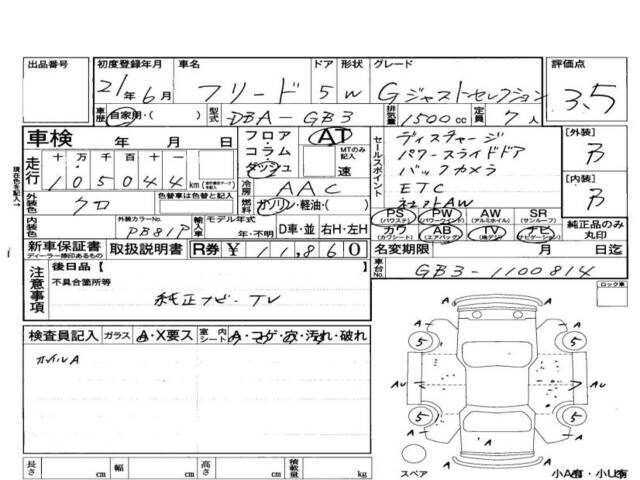 出品番号 初度登録年月 車名 ドア 形状 グレード 評価点
21年6月 フリード 5 W Gジャストセレクション 3.5
車歴 自家用・( ) 型式 DBA-GB3 排気量 1500cc 定員 7人
車検 年 月 日
フロア・コラム・ダッシュ AT MTのみ記入 速
走行 十 万 千 百 十 一
105044 km
現在色を記入→
外装色 クロ 色替車は色替と記入
冷房 AAC
燃料 ガソリン・軽油・( )
セールスポイント
ディスチャージ
パワースライドドア
バックカメラ
ETC
社外AW
[外装]
[内装]
PS (パワステ) PW (パワーウインド) AW (アルミホイル) SR (サンルーフ)
カワ (カワシート) AB (エアバッグ) TV (地デジ) ナビ (ナビゲーション)
純正品のみ丸印
内装色 外装カラーNo. PB81P 輸入車 モデル年式 年・不明 D車・並 右H・左H
新車保証書 ディーラー捺印あるもの 取扱説明書 R券 ¥ 11,860
名変期限 月 日迄
車台No. GB3-1100814
注意事項
後日品【 】
不具合箇所等
純正ナビ-TV
ロック車
検査員記入 ガラス A・X要ス 室内シート A・コゲ・穴・汚れ・破れ
ホイルA
A A
A 5 5 A
AU AU
A 5 5 A
A A
スペア
小A有・小U有
長さ cm 幅 cm 高さ cm 積載量 kg